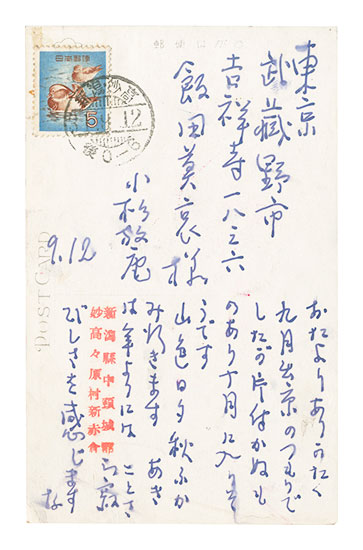 東京
武蔵野市
吉祥寺一八三六
飯田莫哀様
小杉放庵
9.12
おたよりありかたく
九月出京のつもりで
したが片付かぬも
のあり十月に入りそ
うです
山色日夕秋ふか
み行きます あき
は年よりには ことさら寂
びしさを感じます
新潟縣中頸城郡
妙高々原村新赤倉
POST CARD
日本郵便
5